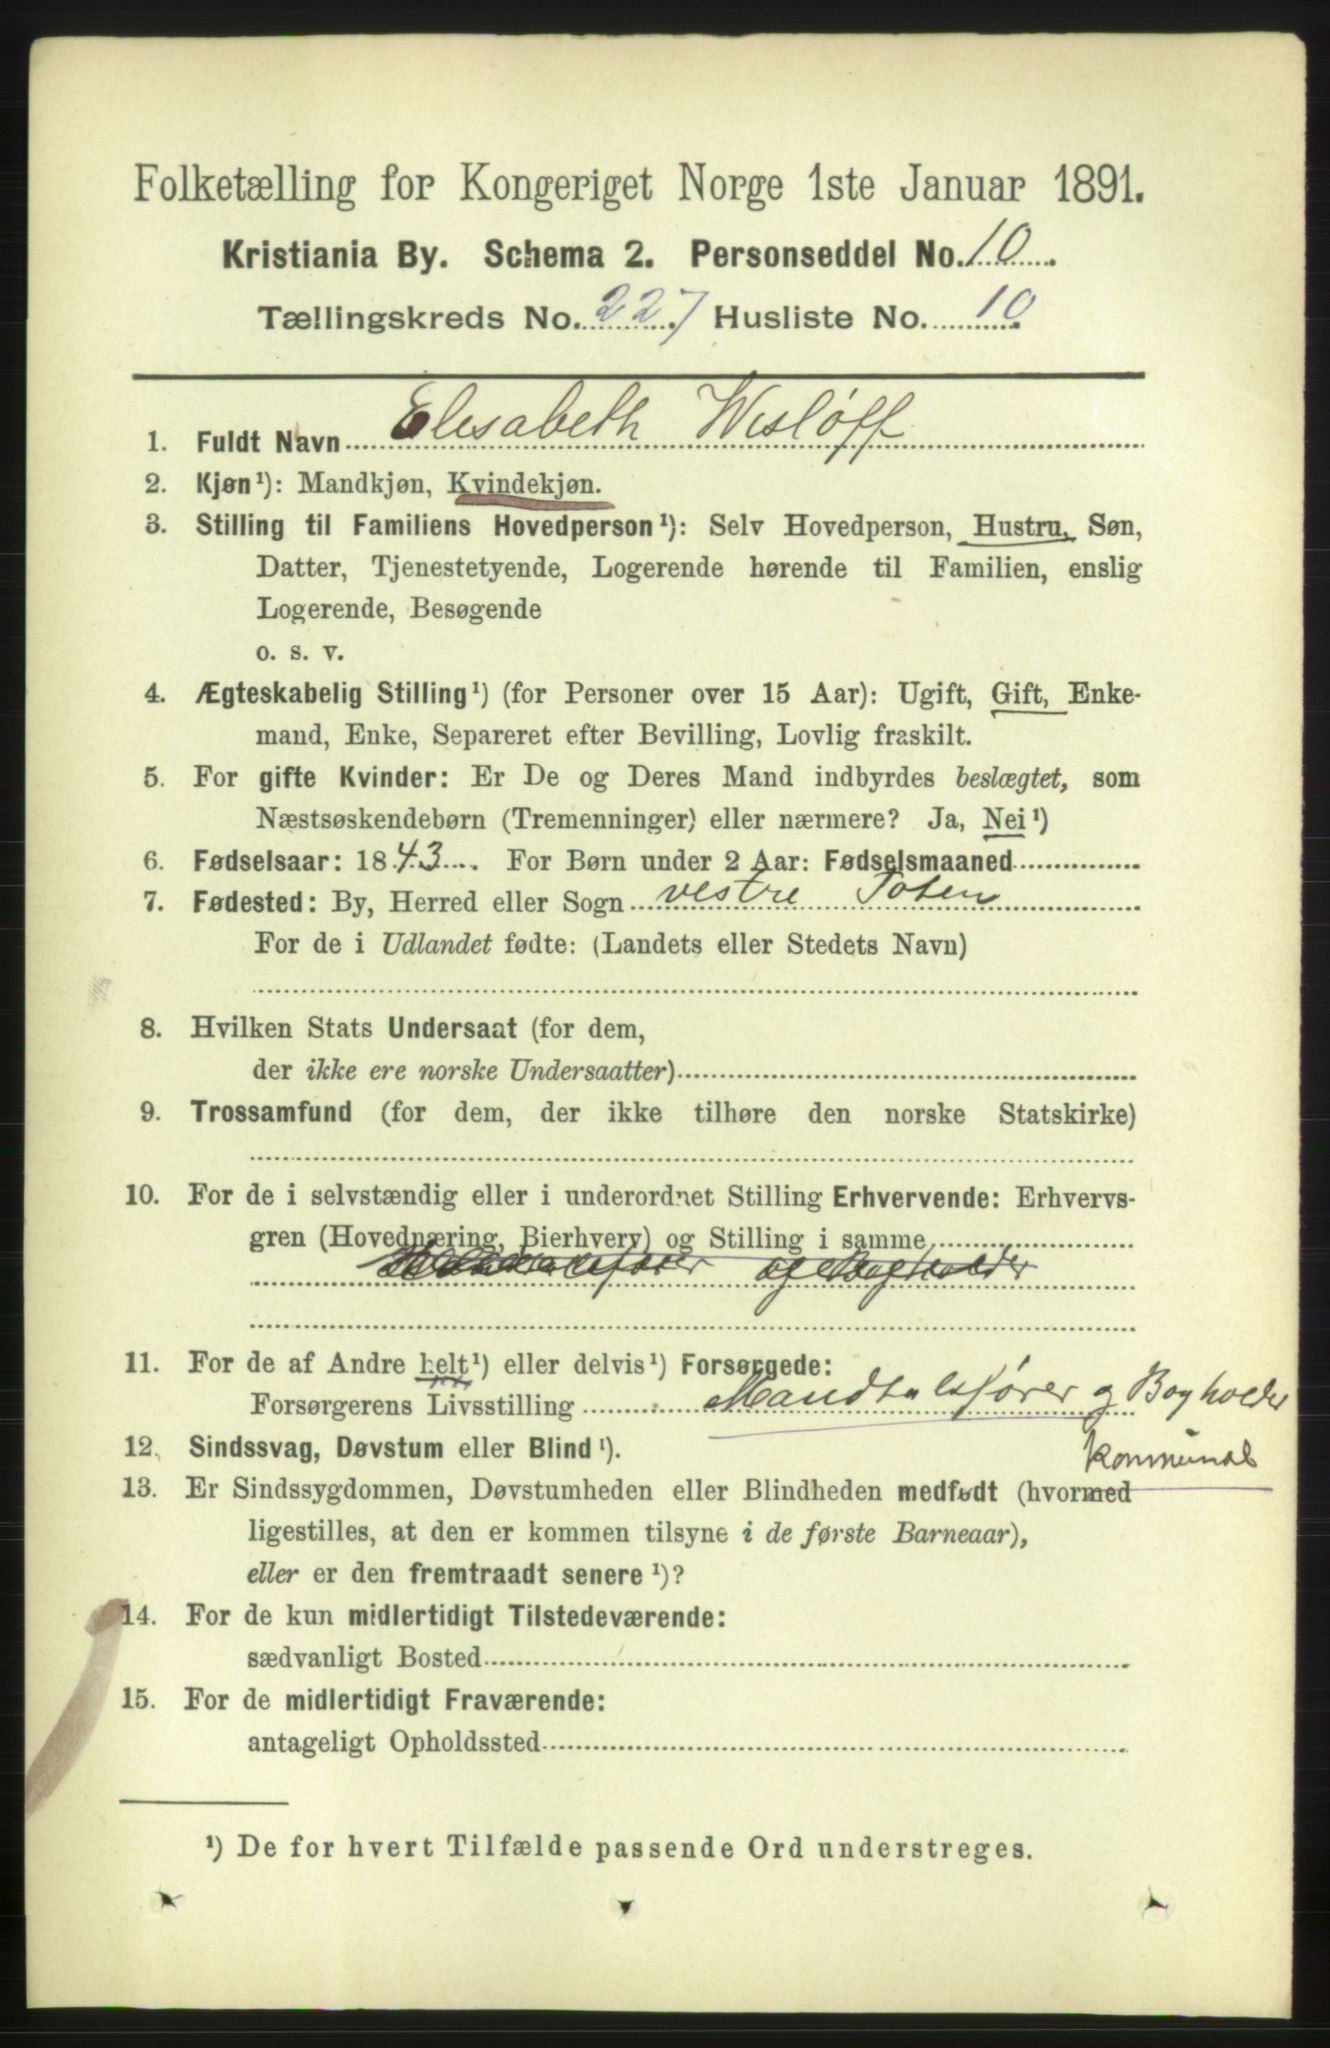 Folketælling for Kongeriget Norge 1ste Januar 1891.
Kristiania By. Schema 2. Personseddel No. 10.
Tællingskreds No. 227. Husliste No. 10.
1. Fuldt Navn Elisabeth Wisløff
2. Kjøn¹): Mandkjøn, Kvindekjøn.
3. Stilling til Familiens Hovedperson¹): Selv Hovedperson, Hustru, Søn,
Datter, Tjenestetyende, Logerende hørende til Familien, enslig
Logerende, Besøgende
o. s. v.
4. Ægteskabelig Stilling¹) (for Personer over 15 Aar): Ugift, Gift, Enke-
mand, Enke, Separeret efter Bevilling, Lovlig fraskilt.
5. For gifte Kvinder: Er De og Deres Mand indbyrdes beslægtet, som
Næstsøskendebørn (Tremenninger) eller nærmere? Ja, Nei¹)
6. Fødselsaar: 1843. For Børn under 2 Aar: Fødselsmaaned
7. Fødested: By, Herred eller Sogn vestre Toten
For de i Udlandet fødte: (Landets eller Stedets Navn)
8. Hvilken Stats Undersaat (for dem,
der ikke ere norske Undersaatter)
9. Trossamfund (for dem, der ikke tilhøre den norske Statskirke)
10. For de i selvstændig eller i underordnet Stilling Erhvervende: Erhvervs-
gren (Hovednæring, Bierhverv) og Stilling i samme
og Bogholder
11. For de af Andre helt¹) eller delvis¹) Forsørgede:
Forsørgerens Livsstilling Mandtalsfører og Bogholder
kommunal
12. Sindssvag, Døvstum eller Blind¹).
13. Er Sindssygdommen, Døvstumheden eller Blindheden medfødt (hvormed
ligestilles, at den er kommen tilsyne i de første Barneaar),
eller er den fremtraadt senere¹)?
14. For de kun midlertidigt Tilstedeværende:
sædvanligt Bosted
15. For de midlertidigt Fraværende:
antageligt Opholdssted
¹) De for hvert Tilfælde passende Ord understreges.